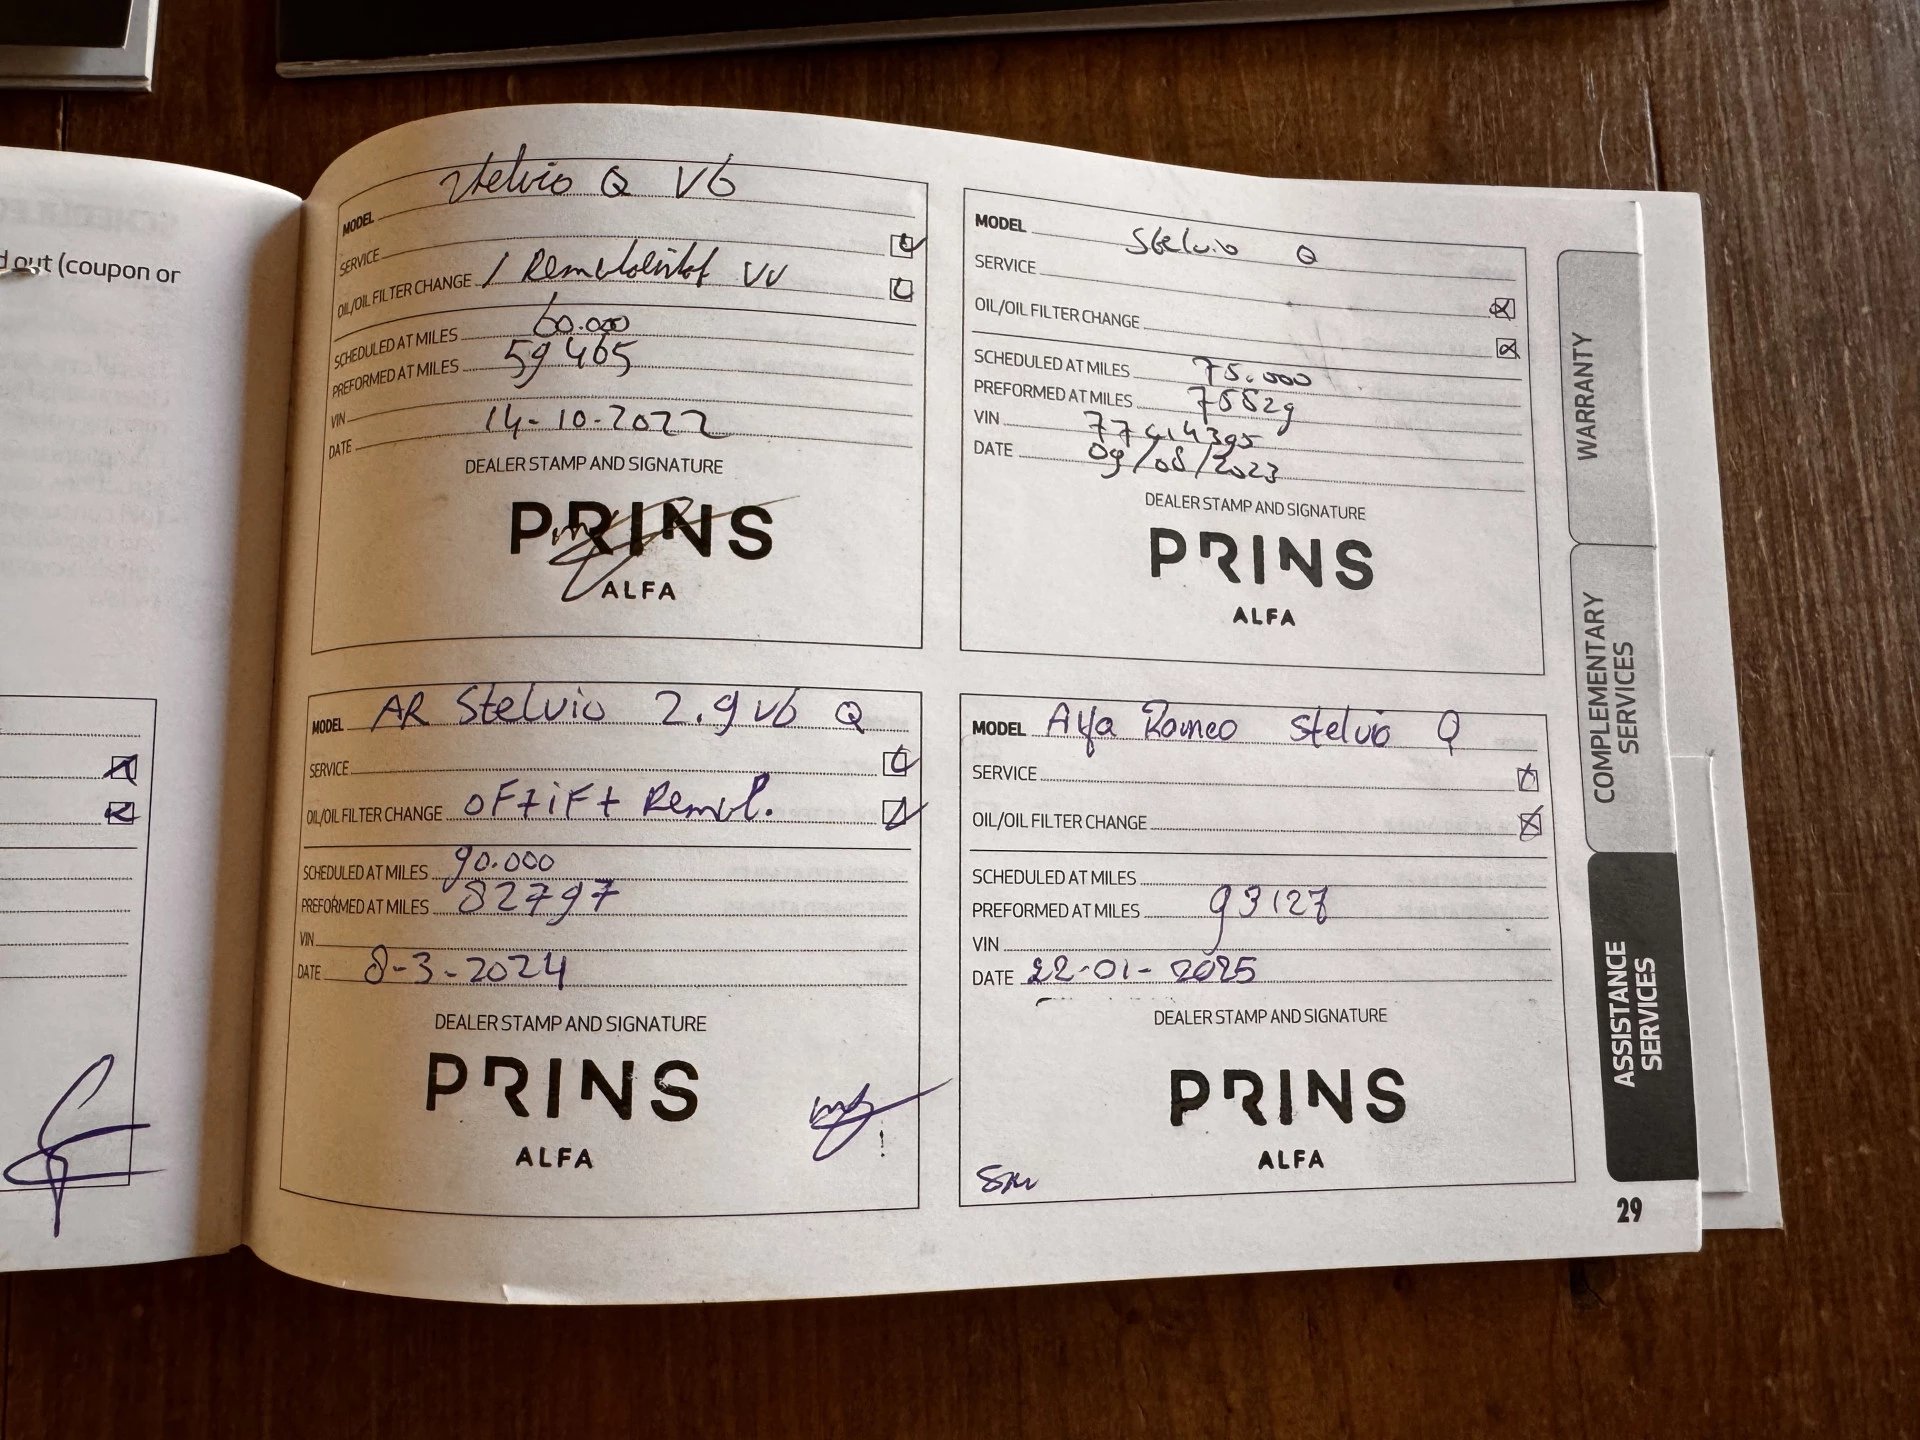 d out (coupon or
MODEL Stelvio Q V6
SERVICE
OIL/OIL FILTER CHANGE / Remvloeistof VV
SCHEDULED AT MILES 60.000
PREFORMED AT MILES 59465
VIN
DATE 14-10-2022
DEALER STAMP AND SIGNATURE
PRINS
ALFA
MODEL Stelvio Q
SERVICE
OIL/OIL FILTER CHANGE
SCHEDULED AT MILES 75.000
PREFORMED AT MILES
VIN
DATE 09/08/2023
DEALER STAMP AND SIGNATURE
PRINS
ALFA
MODEL AR Stelvio 2.9 V6 Q
SERVICE
OIL/OIL FILTER CHANGE Remvl.
SCHEDULED AT MILES 90.000
PREFORMED AT MILES 82797
VIN
DATE 8-3-2024
DEALER STAMP AND SIGNATURE
PRINS
ALFA
MODEL Alfa Romeo Stelvio Q
SERVICE
OIL/OIL FILTER CHANGE
SCHEDULED AT MILES
PREFORMED AT MILES 93127
VIN
DATE 22-01-2025
DEALER STAMP AND SIGNATURE
PRINS
ALFA
WARRANTY
COMPLEMENTARY
SERVICES
ASSISTANCE
SERVICES
29